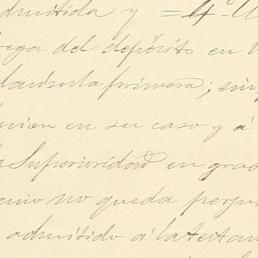 admitida y = 4º U
rega del depósito en l
lausula primera; sin
quien en su caso y á
a Superioridad en grad
emio no queda perju
admitido á la tertan